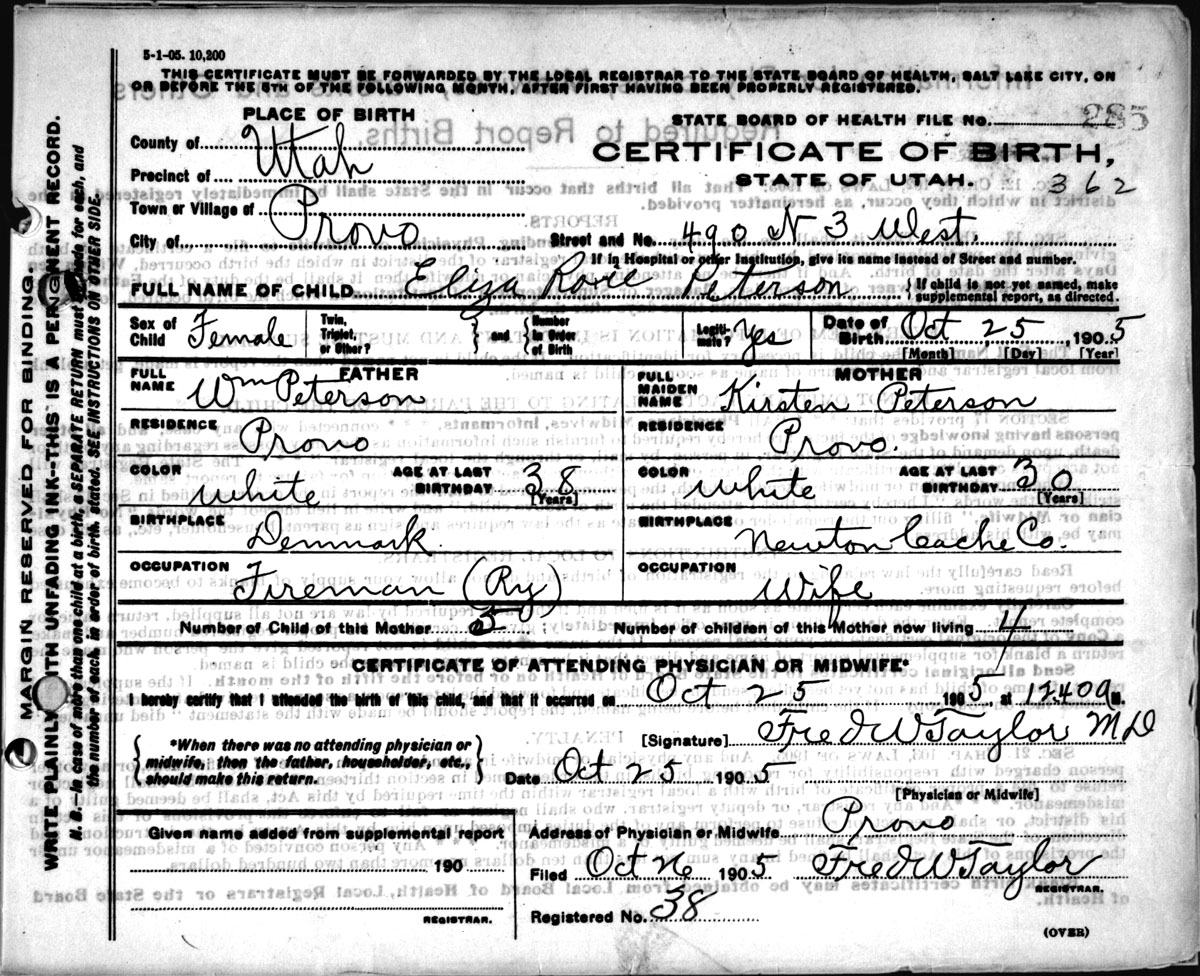 5-1-05. 10,200
THIS CERTIFICATE MUST BE FORWARDED BY THE LOCAL REGISTRAR TO THE STATE BOARD OF HEALTH, SALT LAKE CITY, ON
OR BEFORE THE 5TH OF THE FOLLOWING MONTH, AFTER FIRST HAVING BEEN PROPERLY REGISTERED.
PLACE OF BIRTH
STATE BOARD OF HEALTH FILE No. 285
County of Utah
CERTIFICATE OF BIRTH,
Precinct of
STATE OF UTAH. 362
Town or Village of Provo
City of
Street and No. 490 N 3 West.
If in Hospital or other Institution, give its name instead of Street and number.
FULL NAME OF CHILD Eliza Peterson { If child is not yet named, make supplemental report, as directed.
Sex of Child Female
Twin, Triplet, or Other? } and { Number in Order of Birth
Legiti- mate? Yes
Date of Birth Oct 25 1905
[Month] [Day] [Year]
FATHER
FULL NAME Wm Peterson
MOTHER
FULL MAIDEN NAME Kirsten Peterson
RESIDENCE Provo
RESIDENCE Provo.
COLOR White AGE AT LAST BIRTHDAY 38 [Years]
COLOR White AGE AT LAST BIRTHDAY 30 [Years]
BIRTHPLACE Denmark
BIRTHPLACE Newton Cache Co.
OCCUPATION Fireman (Ry)
OCCUPATION Wife
Number of Child of this Mother 5 Number of children of this Mother now living 4
CERTIFICATE OF ATTENDING PHYSICIAN OR MIDWIFE*
I hereby certify that I attended the birth of this child, and that it occurred on Oct 25 1905, at 1240 a M.
{ *When there was no attending physician or midwife, then the father, householder, etc., should make this return. }
[Signature] Fred W Taylor MD
Date Oct 25 1905
[Physician or Midwife]
Given name added from supplemental report
190
REGISTRAR.
Address of Physician or Midwife Provo
Filed Oct 26 1905 Fred W Taylor
REGISTRAR.
Registered No. 38
(OVER)
MARGIN RESERVED FOR BINDING.
WRITE PLAINLY WITH UNFADING INK--THIS IS A PERMANENT RECORD.
N. B.--In case of more than one child at a birth, a SEPARATE RETURN must be made for each, and
the number of each, in order of birth, stated. SEE INSTRUCTIONS ON OTHER SIDE.